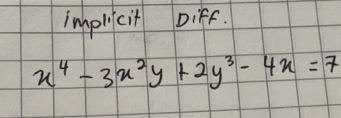 implicit Diff.
x⁴ - 3x²y + 2y³ - 4x = 7